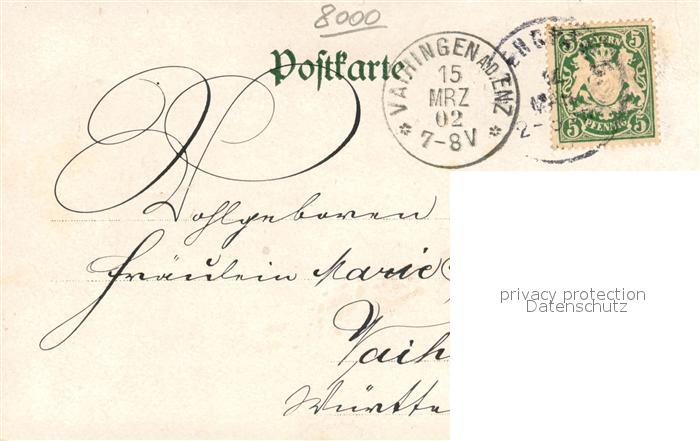 8000
Postkarte
VAIHINGEN A/D. ENZ
15
MRZ
02
7-8V
BAYERN
5 5
5 5
PFENNIG
Wohlgeboren
Fräulein Marie
Vaih
Württe
privacy protection
Datenschutz